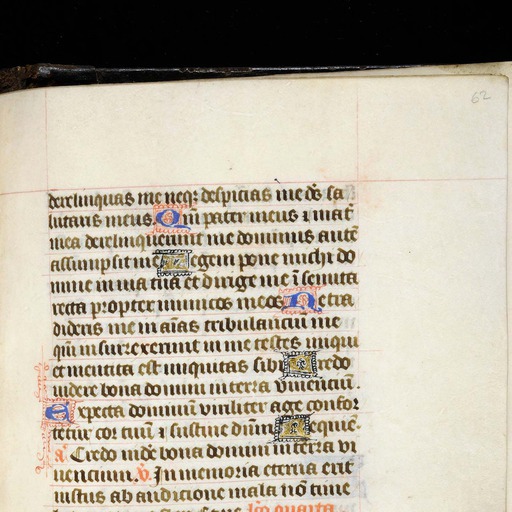 62
derelinquas me neqz despicias me ds sa
lutaris meus. Qm pater meus ⁊ mat
mea derelinquerunt me dominus aute
assumpsit me Legem pone michi do
mine in uia tua et dirige me i semita
recta propter inimicos meos Ne tra
dideris me in aias tribulanciu me
qm insurrexerunt in me testes iniqui
et mentita est iniquitas sibi Credo
uidere bona domini in terra viuenciu.
Expecta dominum viriliter age confor
tetur cor tuu ⁊ sustine dnm Requie.
a. Credo uide bona domini in terra vi
uencium. v. In memoria eterna erit
iustus ab audicione mala no time